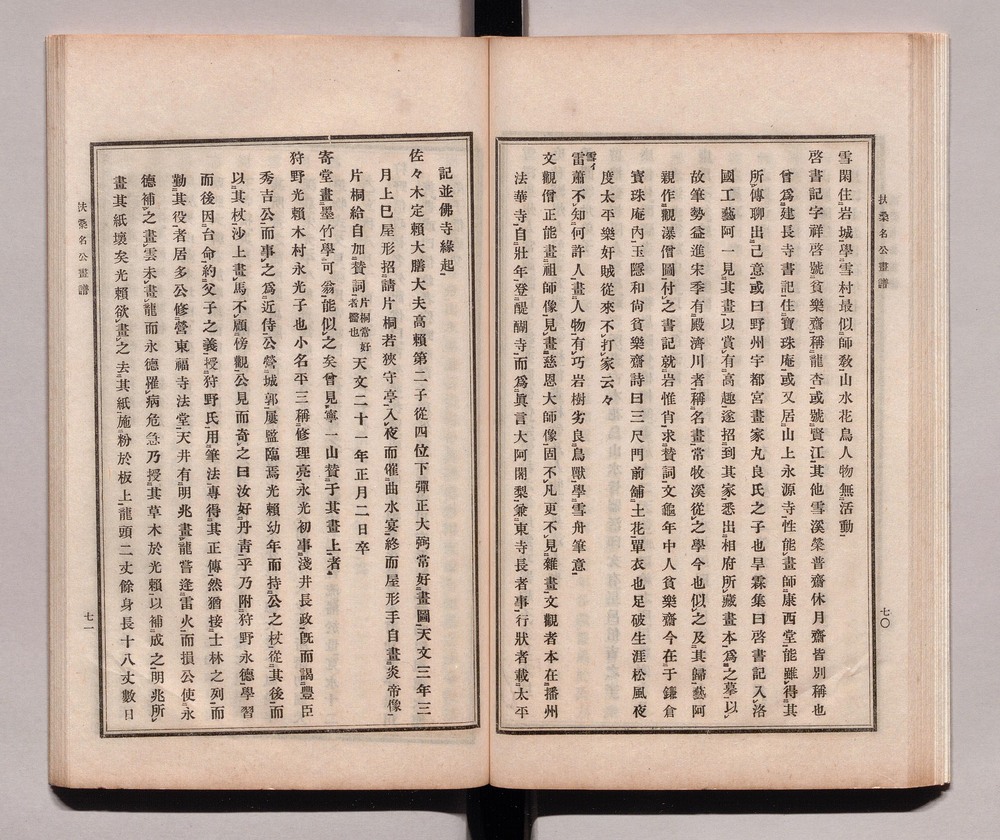 扶桑名公畫譜
雪閑住岩城學雪村最似師敎山水花鳥人物無活動
啓書記字祥啓號貧樂齋稱龍杏或號賢江其他雪溪榮普齋休月齋皆別稱也
曾爲建長寺書記住寶珠庵或又居山上永源寺性能畫師康西堂能雖得其
所傳聊出己意或曰野州宇都宮畫家丸良氏之子也旱霖集曰啓書記入洛
國工藝阿一見其畫以賞有高趣遂招到其家悉出相府所藏畫本爲之摹以
故筆勢益進宋季有殿濟川者稱名畫常牧溪從之學今也似之及其歸藝阿
親作觀瀑僧圖付之書記就岩惟肖求賛詞文龜年中人貧樂齋今在于鎌倉
寶珠庵內玉隱和尙貧樂齋詩曰三尺門前舖土花單衣也足破生涯松風夜
度太平樂奸賊從來不打家云々
雷雪イ蕭不知何許人畫人物有巧岩樹劣良鳥獸學雪舟筆意
文觀僧正能畫祖師像見畫慈恩大師像固不凡更不見雜畫文觀者本在播州
法華寺自壯年登醍醐寺而爲眞言大阿闍梨兼東寺長者事行狀者載太平
七〇
扶桑名公畫譜
記並佛寺緣起
佐々木定賴大膳大夫高賴第二子從四位下彈正大弼常好畫圖天文三年三
月上巳屋形招請片桐若狹守亭入夜而催曲水宴終而屋形手自畫炎帝像
片桐給自加賛詞片桐常好者醫也天文二十一年正月二日卒
寄堂畫墨竹學可翁能似之矣曾見寧一山賛于其畫上者
狩野光賴木村永光子也小名平三稱修理亮永光初事淺井長政旣而謁豐臣
秀吉公而事之爲近侍公營城郭屢監臨焉光賴幼年而持公之杖從其後而
以其杖沙上畫馬不顧傍觀公見而奇之曰汝好丹靑乎乃附狩野永德學習
而後因台命約父子之義授狩野氏用筆法專得其正傳然猶接士林之列而
勤其役者居多公修營東福寺法堂天井有明兆畫龍嘗逢雷火而損公使永
德補之畫雲未畫龍而永德罹病危急乃授其草本於光賴以補成之明兆所
畫其紙壞矣光賴欲畫之去其紙施粉於板上龍頭二丈餘身長十八丈數日
七一